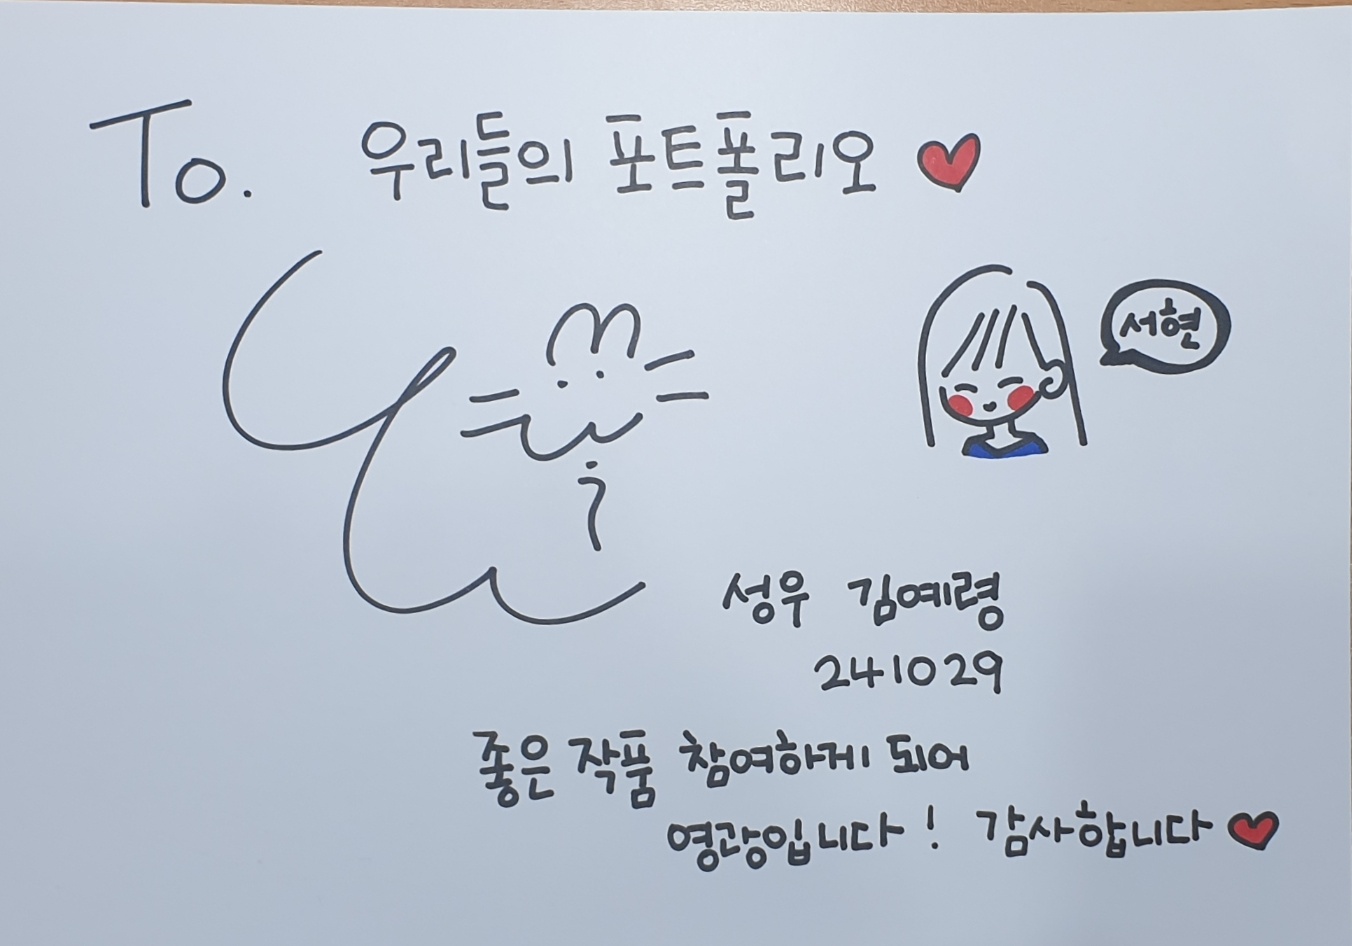 To. 우리들의 포트폴리오
서현
성우 김예령
241029
좋은 작품 참여하게 되어
영광입니다! 감사합니다